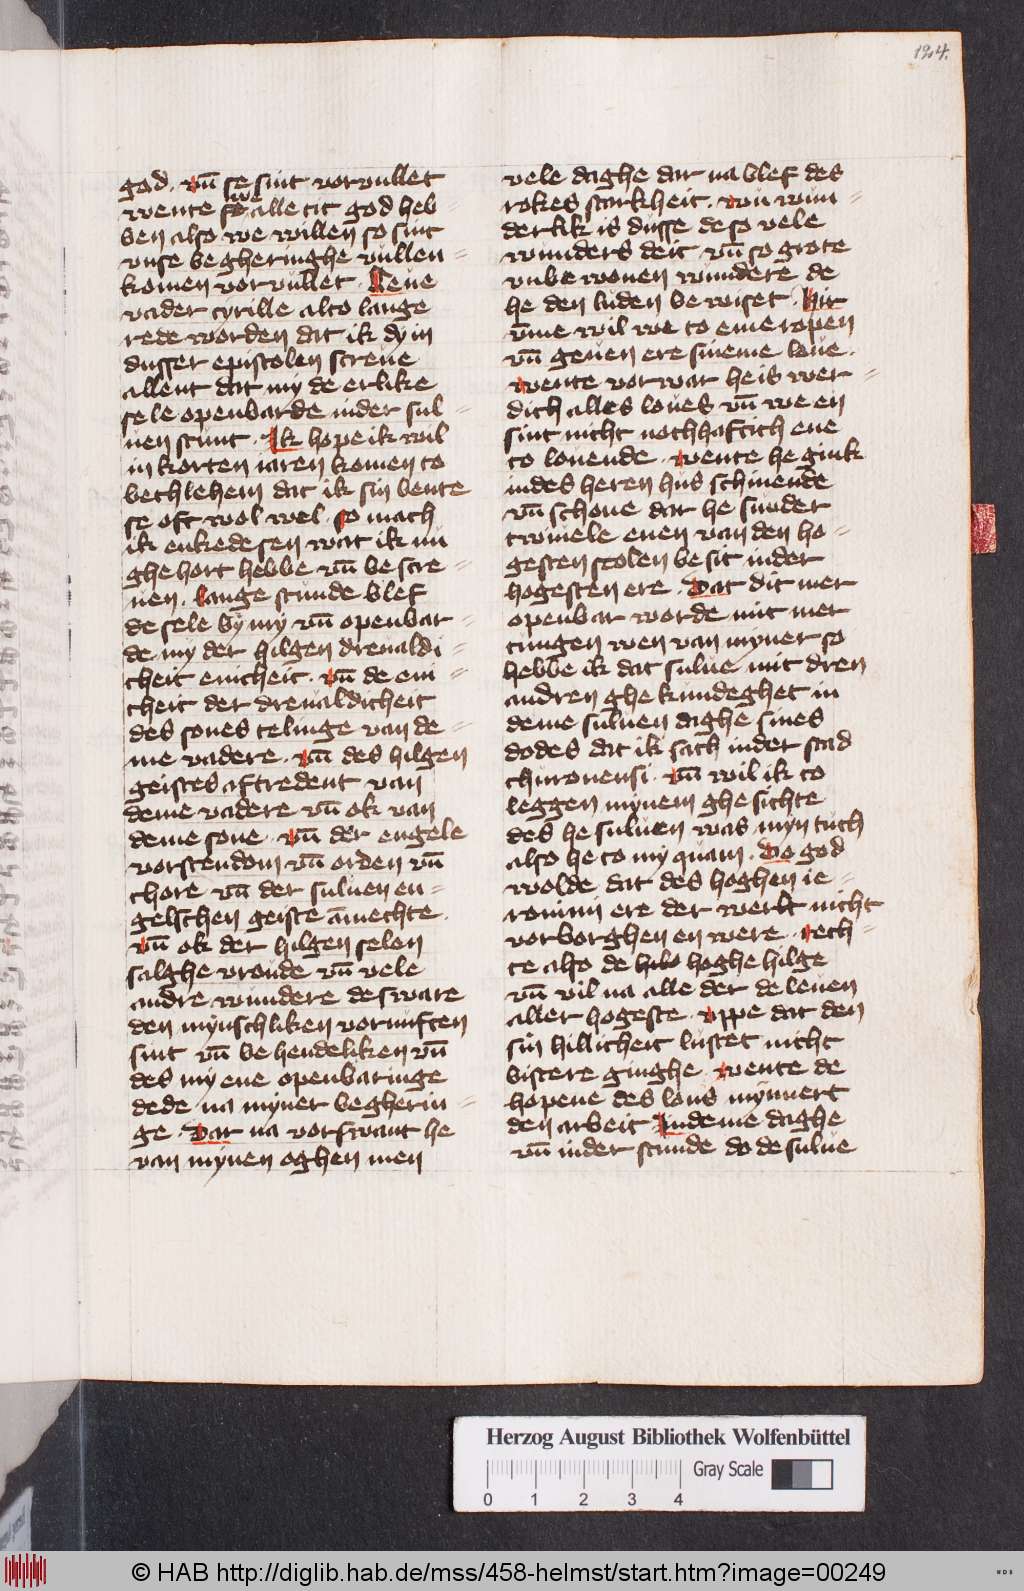 124.
god. vn̄ se sint vorvullet
wente se we alle tit god heb=
ben also we willen so sint
vnse begheringhe vullen=
komen vorvullet. Leue
vader cyrille also lange
rede worden dat ik dy in
dusser epistolen screue
allent dat my de erlike
sele openbarde inder sul=
uen stunt. Ik hope ik wil
in korten iaren komen to
bethlehem dat ik sin bente
se oft wol wel. so mach
ik enkede sen wat ik nu
ghehort hebbe vn̄ bescre=
uen. Lange stunde blef
de sele by my vn̄ openbar=
de my der hilgen dreualdi=
cheit enicheit. vn̄ de eni=
cheit der dreualdicheit
des sones telinge van de=
me vadere. vn̄ des hilgen
geistes aftredent van
deme vadere vn̄ ok van
deme sone. vn̄ der engele
vorstendom vn̄ orden vn̄
chore vn̄ der suluen en=
gelschen geiste āmechte.
vn̄ ok der hilgen selen
salghe vronde vn̄ vele
andre wundere de sware
den mynschliken vornuften
sint vn̄ behendeliken vn̄
des my ene openbaringe
dede na myner begherin=
ge. Dar na vorswant he
van mynen oghen men
vele daghe dar na blef des
rokes starkheit. wu wun=
derlik is dusse de so vele
wunders deit vn̄ so grote
vnbewonen wundere de
he den luden bewiset. Hir
vm̄e wil we to eme ropen
vn̄ geuen ere sineme loue.
wente vorwar he is wer=
dich alles loues vn̄ we en
sint nicht nochhaftich ene
to louende. wente he gink
indes heren hus schinende
vn̄ schone dar he sunder
twiuele enen van den ho=
gesten stolen besit inder
hogesten ere. Dat dit mer
openbar worde mit mer
tungen wen van myner so
hebbe ik dat sulue mit dren
andren ghekundeghet in
deme suluen daghe sines
dodes dat ik sach inder stad
thuronensi. vn̄ wil ik to
leggen mynem ghesichte
des he suluen was myn tuch
also he to my quam. Do god
wolde dat des hoghen ie=
ronimi ere der werlt nicht
vorborghen en were. rech=
te also de hoghe hilge
vn̄ vil na alle der de leuen
aller hogeste. vppe dat den
sin hillicheit lustet nicht
bistere ginghe. wente de
hopene des lons mynnert
den arbeit. Indeme daghe
vn̄ inder stunde do de sulue
Herzog August Bibliothek Wolfenbüttel
Gray Scale
0 1 2 3 4
© HAB http://diglib.hab.de/mss/458-helmst/start.htm?image=00249